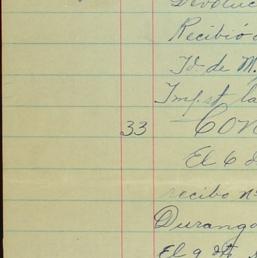 Devoluc
Recibió
Id de M.
Impst la
33 Con
El 6 d
recibo n
Durango
El 9 dt